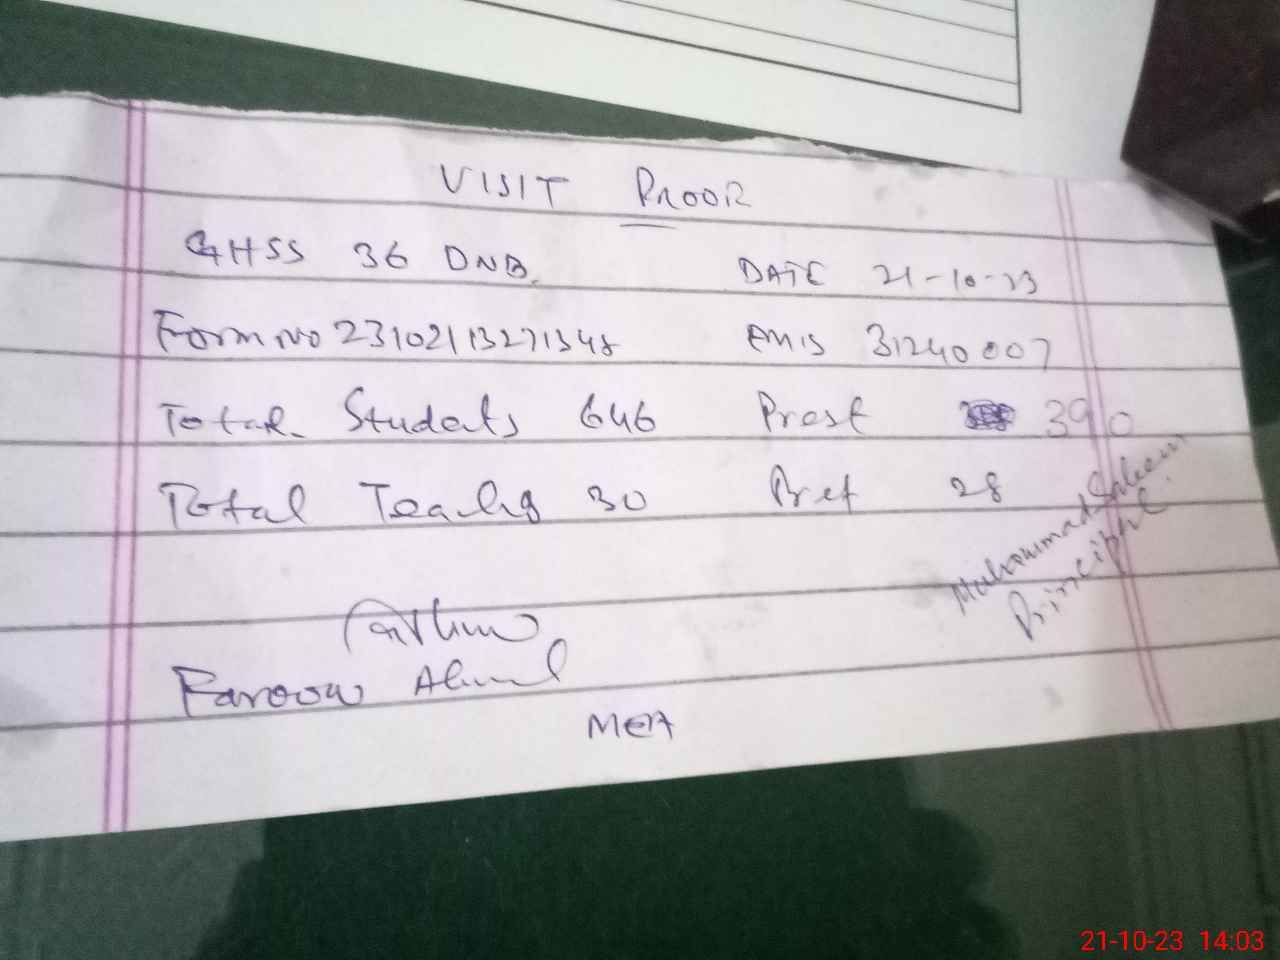 VISIT PROOF
GHSS 36 DNB. DATE 21-10-23
Form No 23102113271348 EMIS 31240007
Total Students 646 Prest 390
Total Teachg 30 Pret 28
Muhammad Saleem
Principal
Farooq Ahmad
MEA
21-10-23 14:03